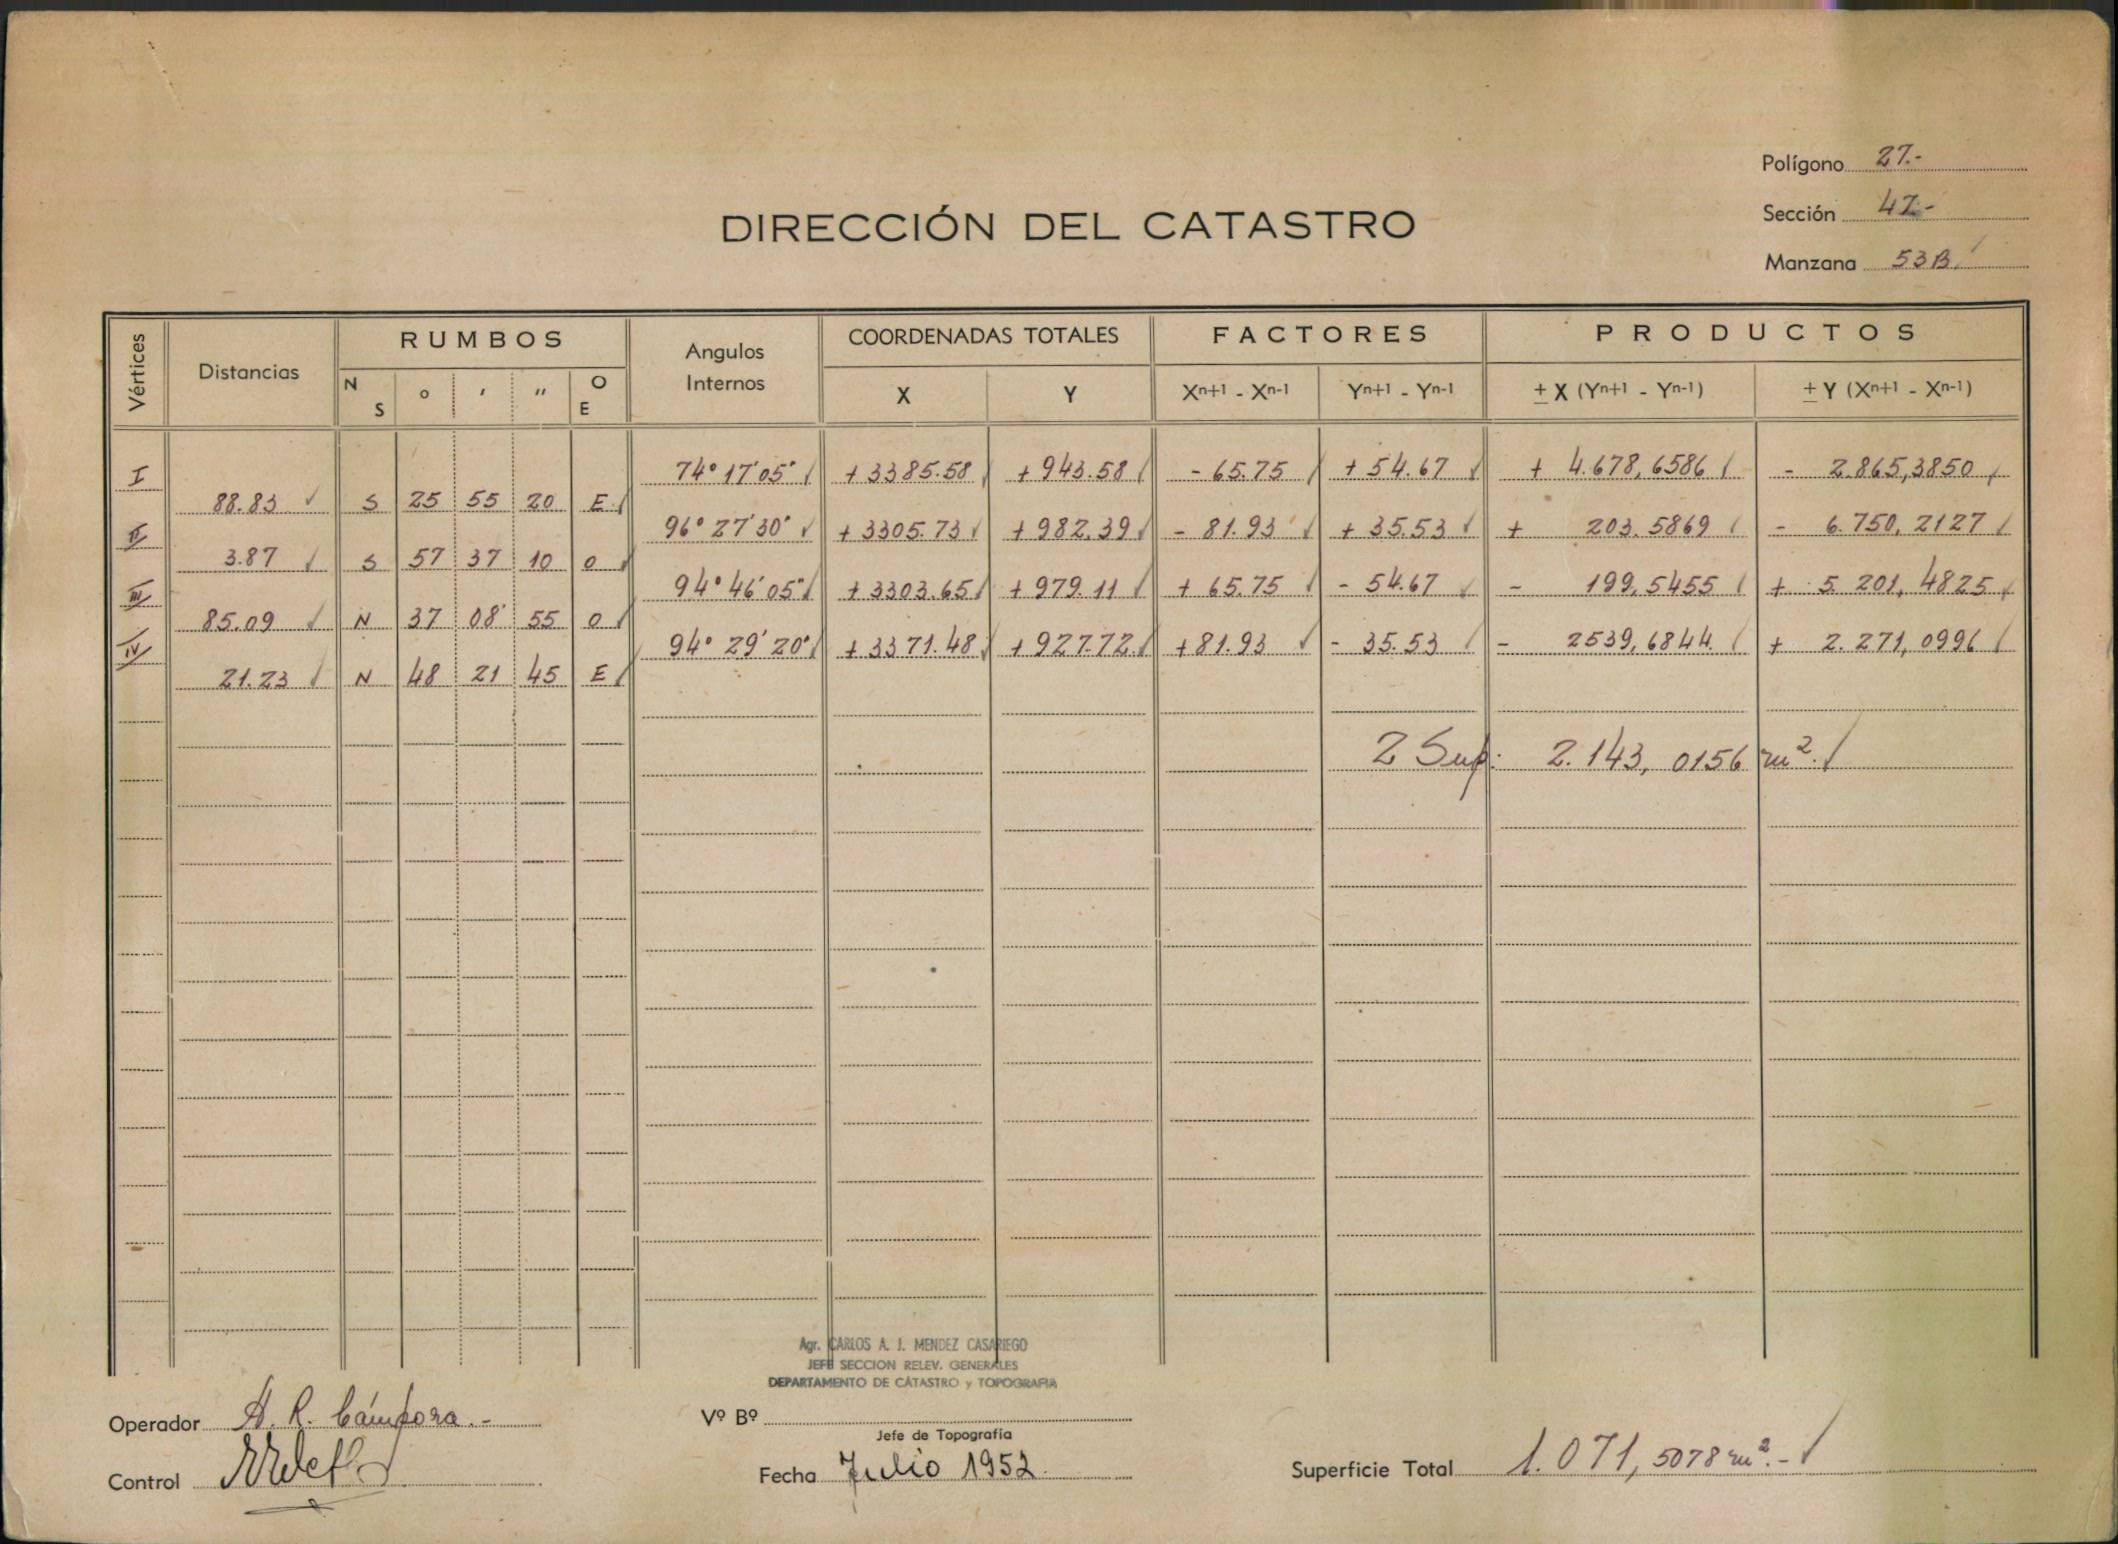 Polígono 27.-
Sección 47.-
Manzana 53B.
DIRECCIÓN DEL CATASTRO
Vértices Distancias RUMBOS Angulos Internos COORDENADAS TOTALES FACTORES PRODUCTOS
N S ° ' " O E X Y Xn+1 - Xn-1 Yn+1 - Yn-1 ± X (Yn+1 - Yn-1) ± Y (Xn+1 - Xn-1)
I 74° 17' 05" + 3385.58 + 943.58 - 65.75 + 54.67 + 4.678,6586 - 2.865,3850
88.83 S 25 55 20 E
II 96° 27' 30" + 3305.73 + 982.39 - 81.93 + 35.53 + 203.5869 - 6.750,2127
3.87 S 57 37 10 O
III 94° 46' 05" + 3303.65 + 979.11 + 65.75 - 54.67 - 199,5455 + 5.201,4825
85.09 N 37 08' 55 O
IV 94° 29' 20" + 3371.48 + 927.72 + 81.93 - 35.53 - 2539,6844. + 2.271,0996
21.23 N 48 21 45 E
2 Sup: 2.143,0156 m².
Agr. CARLOS A. J. MENDEZ CASARIEGO
JEFE SECCION RELEV. GENERALES
DEPARTAMENTO DE CATASTRO y TOPOGRAFIA
Operador A. R. Cámpora.-
Vº Bº
Jefe de Topografía
Control
Fecha Julio 1952.
Superficie Total 1.071,5078 m².-